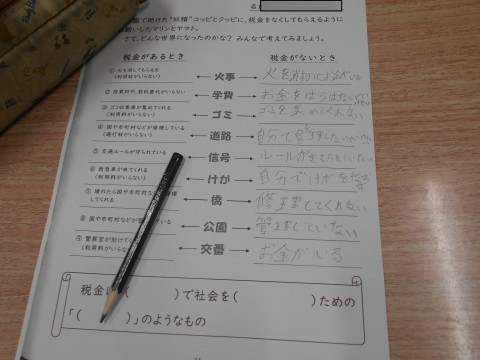 で助けた"妖精"コッピとクッピに、税金をなくしてもらえるように
願いしたマリンとヤマト。
さて、どんな世界になったのかな? みんなで考えてみましょう。
税金があるとき 税金がないとき
① 火を消してもらえる
(利用料がいらない) 火事
② 授業料や、教科書代がいらない 学費 お金をはらはない
③ ゴミ収集車が集めてくれる
(利用料がいらない) ゴミ ゴミを集めてくれない
④ 国や市町村などが管理している
(通行料がいらない) 道路 自分で
⑤ 交通ルールが守られている 信号 ルールが
⑥ 救急車が来てくれる
(利用料がいらない) けが 自分でけがを
⑦ 壊れたら国や市町村な
してくれる 橋 修理してくれない
⑧ 国や市町村などが 公園 管理していない
⑨ 警察官が助けて
(利用料がいらない) 交番 お金がいる
税金は( )で社会を( )ための
「( )」のようなもの